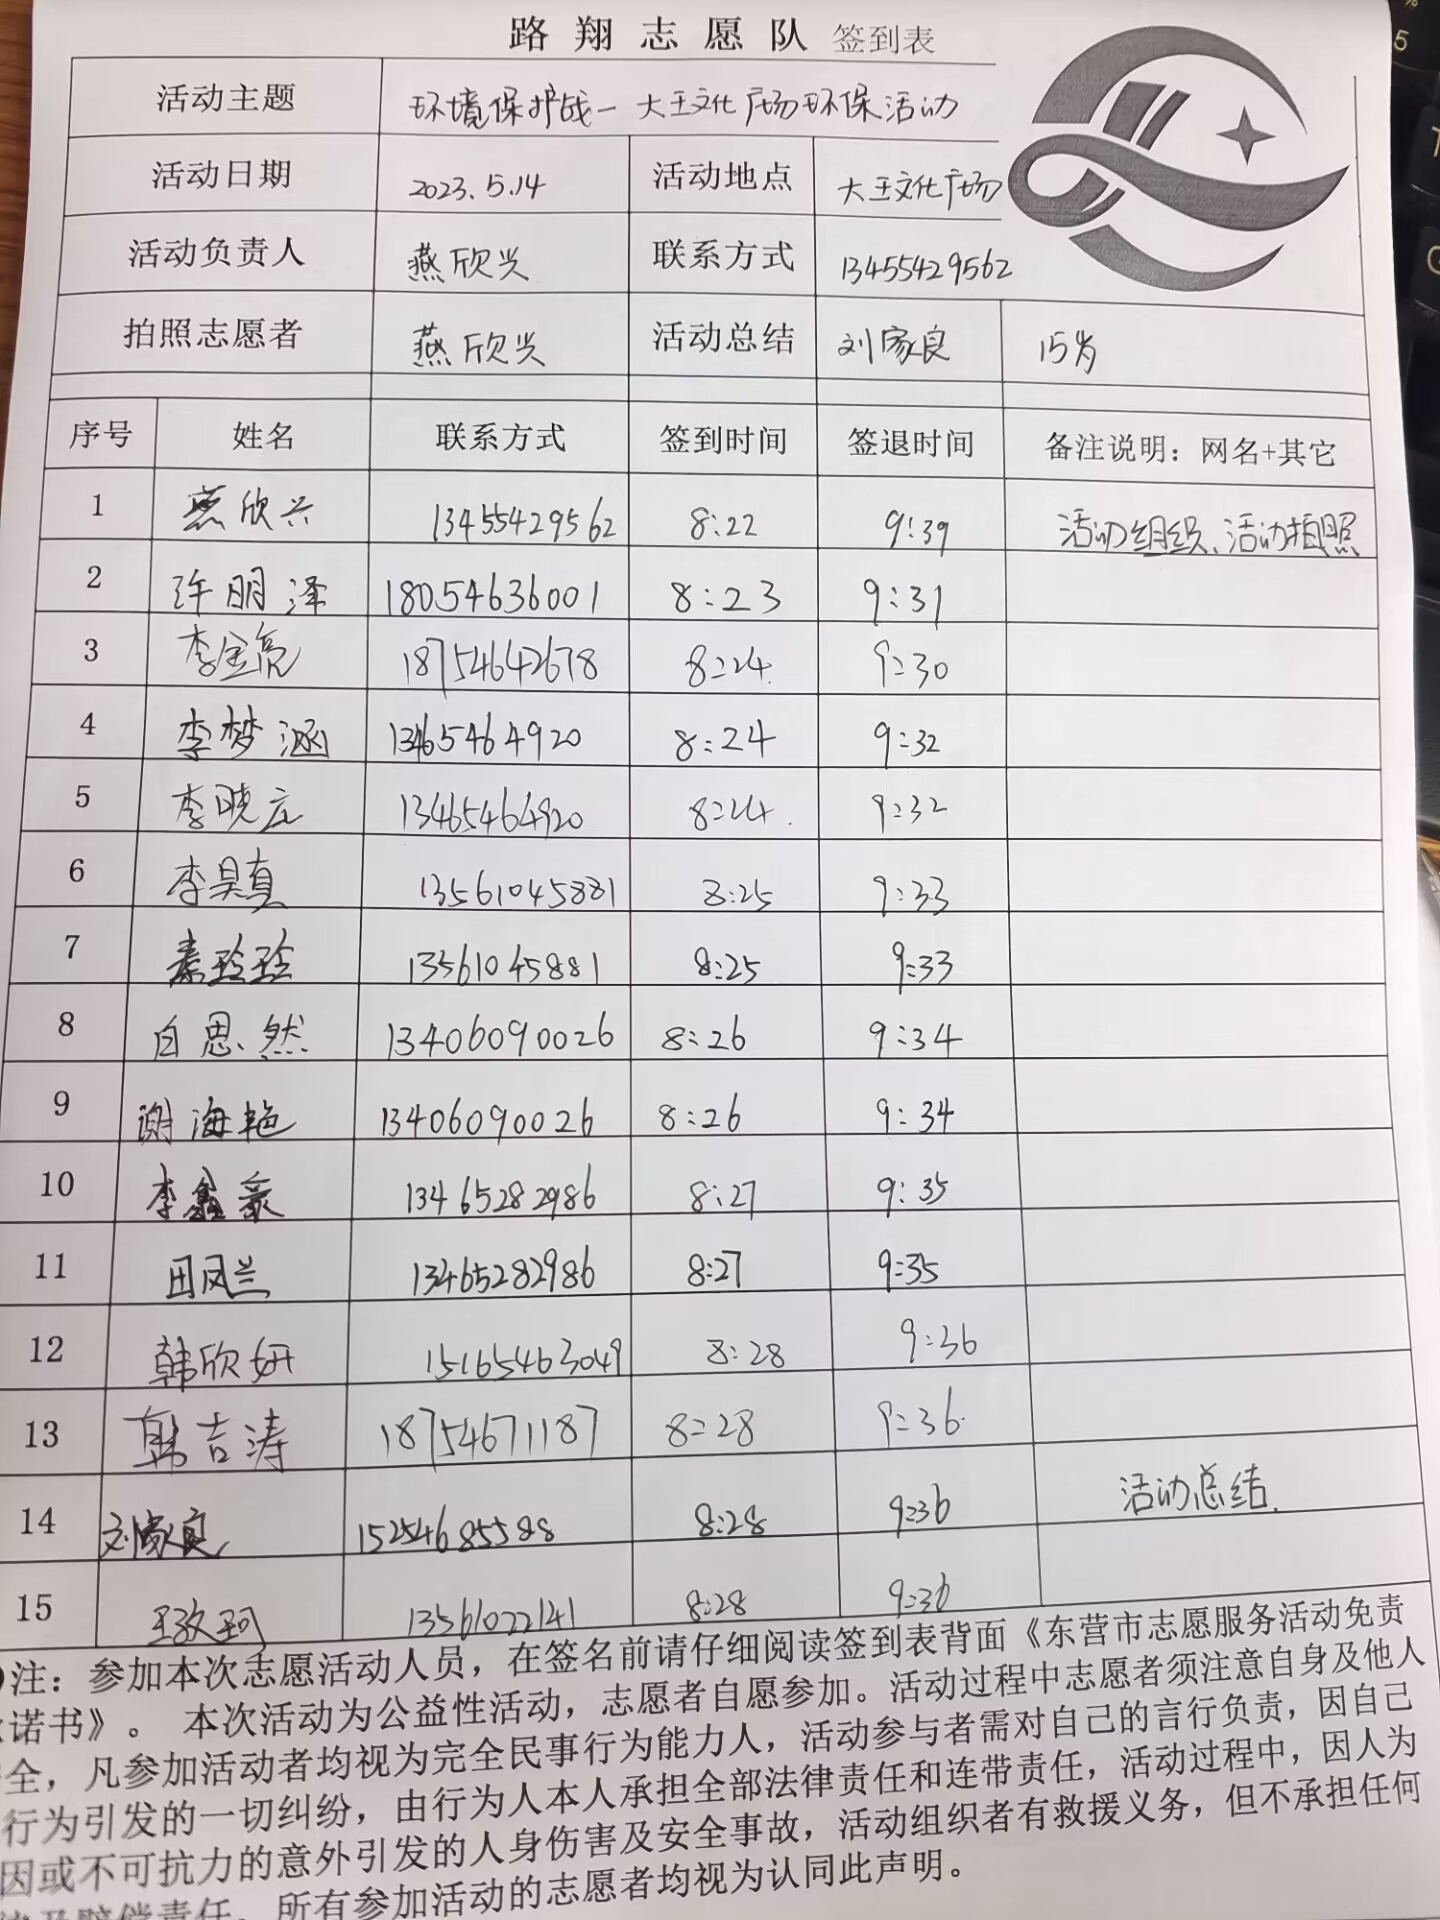 路翔志愿队 签到表
活动主题 环境保护战一大王文化广场环保活动
活动日期 2023.5.14 活动地点 大王文化广场
活动负责人 燕欣兴 联系方式 13455429562
拍照志愿者 燕欣兴 活动总结 刘家良 15岁
序号 姓名 联系方式 签到时间 签退时间 备注说明：网名+其它
1 燕欣兴 13455429562 8:22 9:39 活动组织、活动拍照
2 许明泽 18054636001 8:23 9:31
3 李金亮 18754642678 8:24 9:30
4 李梦涵 13465464920 8:24 9:32
5 李晓庄 13465464920 8:24 9:32
6 李昊真 13561045881 8:25 9:33
7 秦玲玲 13561045881 8:25 9:33
8 自思然 13406090026 8:26 9:34
9 谢海艳 13406090026 8:26 9:34
10 李鑫豪 13465282986 8:27 9:35
11 田凤兰 13465282986 8:27 9:35
12 韩欣妍 15165463049 8:28 9:36
13 韩吉涛 18754671187 8:28 9:36
14 刘家良 15254685588 8:28 9:36 活动总结.
15 13561022141 8:28 9:36
注：参加本次志愿活动人员，在签名前请仔细阅读签到表背面《东营市志愿服务活动免责
诺书》。 本次活动为公益性活动，志愿者自愿参加。活动过程中志愿者须注意自身及他人
全，凡参加活动者均视为完全民事行为能力人，活动参与者需对自己的言行负责，因自己
行为引发的一切纠纷，由行为人本人承担全部法律责任和连带责任，活动过程中，因人为
因或不可抗力的意外引发的人身伤害及安全事故，活动组织者有救援义务，但不承担任何
及赔偿责任。所有参加活动的志愿者均视为认同此声明。